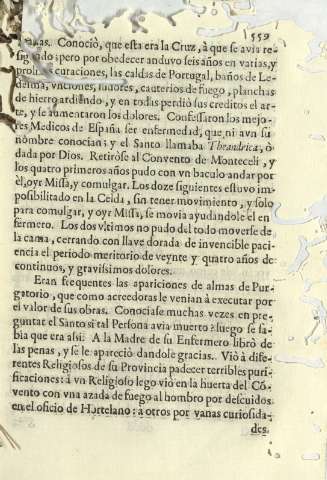 559
Conociò, que esta era la Cruz, à que se avia re-
pero por obedecer anduvo seis años en varias, y
curaciones, las caldas de Portugal, baños de Le-
vnciones, sudores, cauterios de fuego, planchas
de hierro ardiendo, y en todas perdiò sus creditos el ar-
te, y se aumentaron los dolores. Confessaron los mejo-
res Medicos de España ser enfermedad, que ni avn su
nombre conocian; y el Santo llamaba Theandrica, ò
dada por Dios. Retiròse al Convento de Monteceli, y
los quatro primeros años pudo con vn baculo andar por
èl, oyr Missa, y comulgar. Los doze siguientes estuvo im-
posibilitado en la Celda, sin tener movimiento, y solo
para comulgar, y oyr Missa, se movia ayudandole el en-
fermero. Los dos vltimos no pudo del todo moverse de
la cama, cerrando con llave dorada de invencible paci-
encia el periodo meritorio de veynte y quatro años de
continuos, y gravissimos dolores.
Eran frequentes las apariciones de almas de Pur-
gatorio, que como acreedoras le venian à executar por
el valor de sus obras. Conociase muchas vezes en pre-
guntar el Santo si tal Persona avia muerto? luego se sa-
bia que era assi: A la Madre de su Enfermero librò de
las penas, y se le apareciò dandole gracias. Viò à dife-
rentes Religiosos de su Provincia padecer terribles puri-
ficaciones: à vn Religioso lego viò en la huerta del Cõ-
vento con vna azada de fuego al hombro por descuidos
en el oficio de Hortelano: à otros por vanas curiosida-
des.